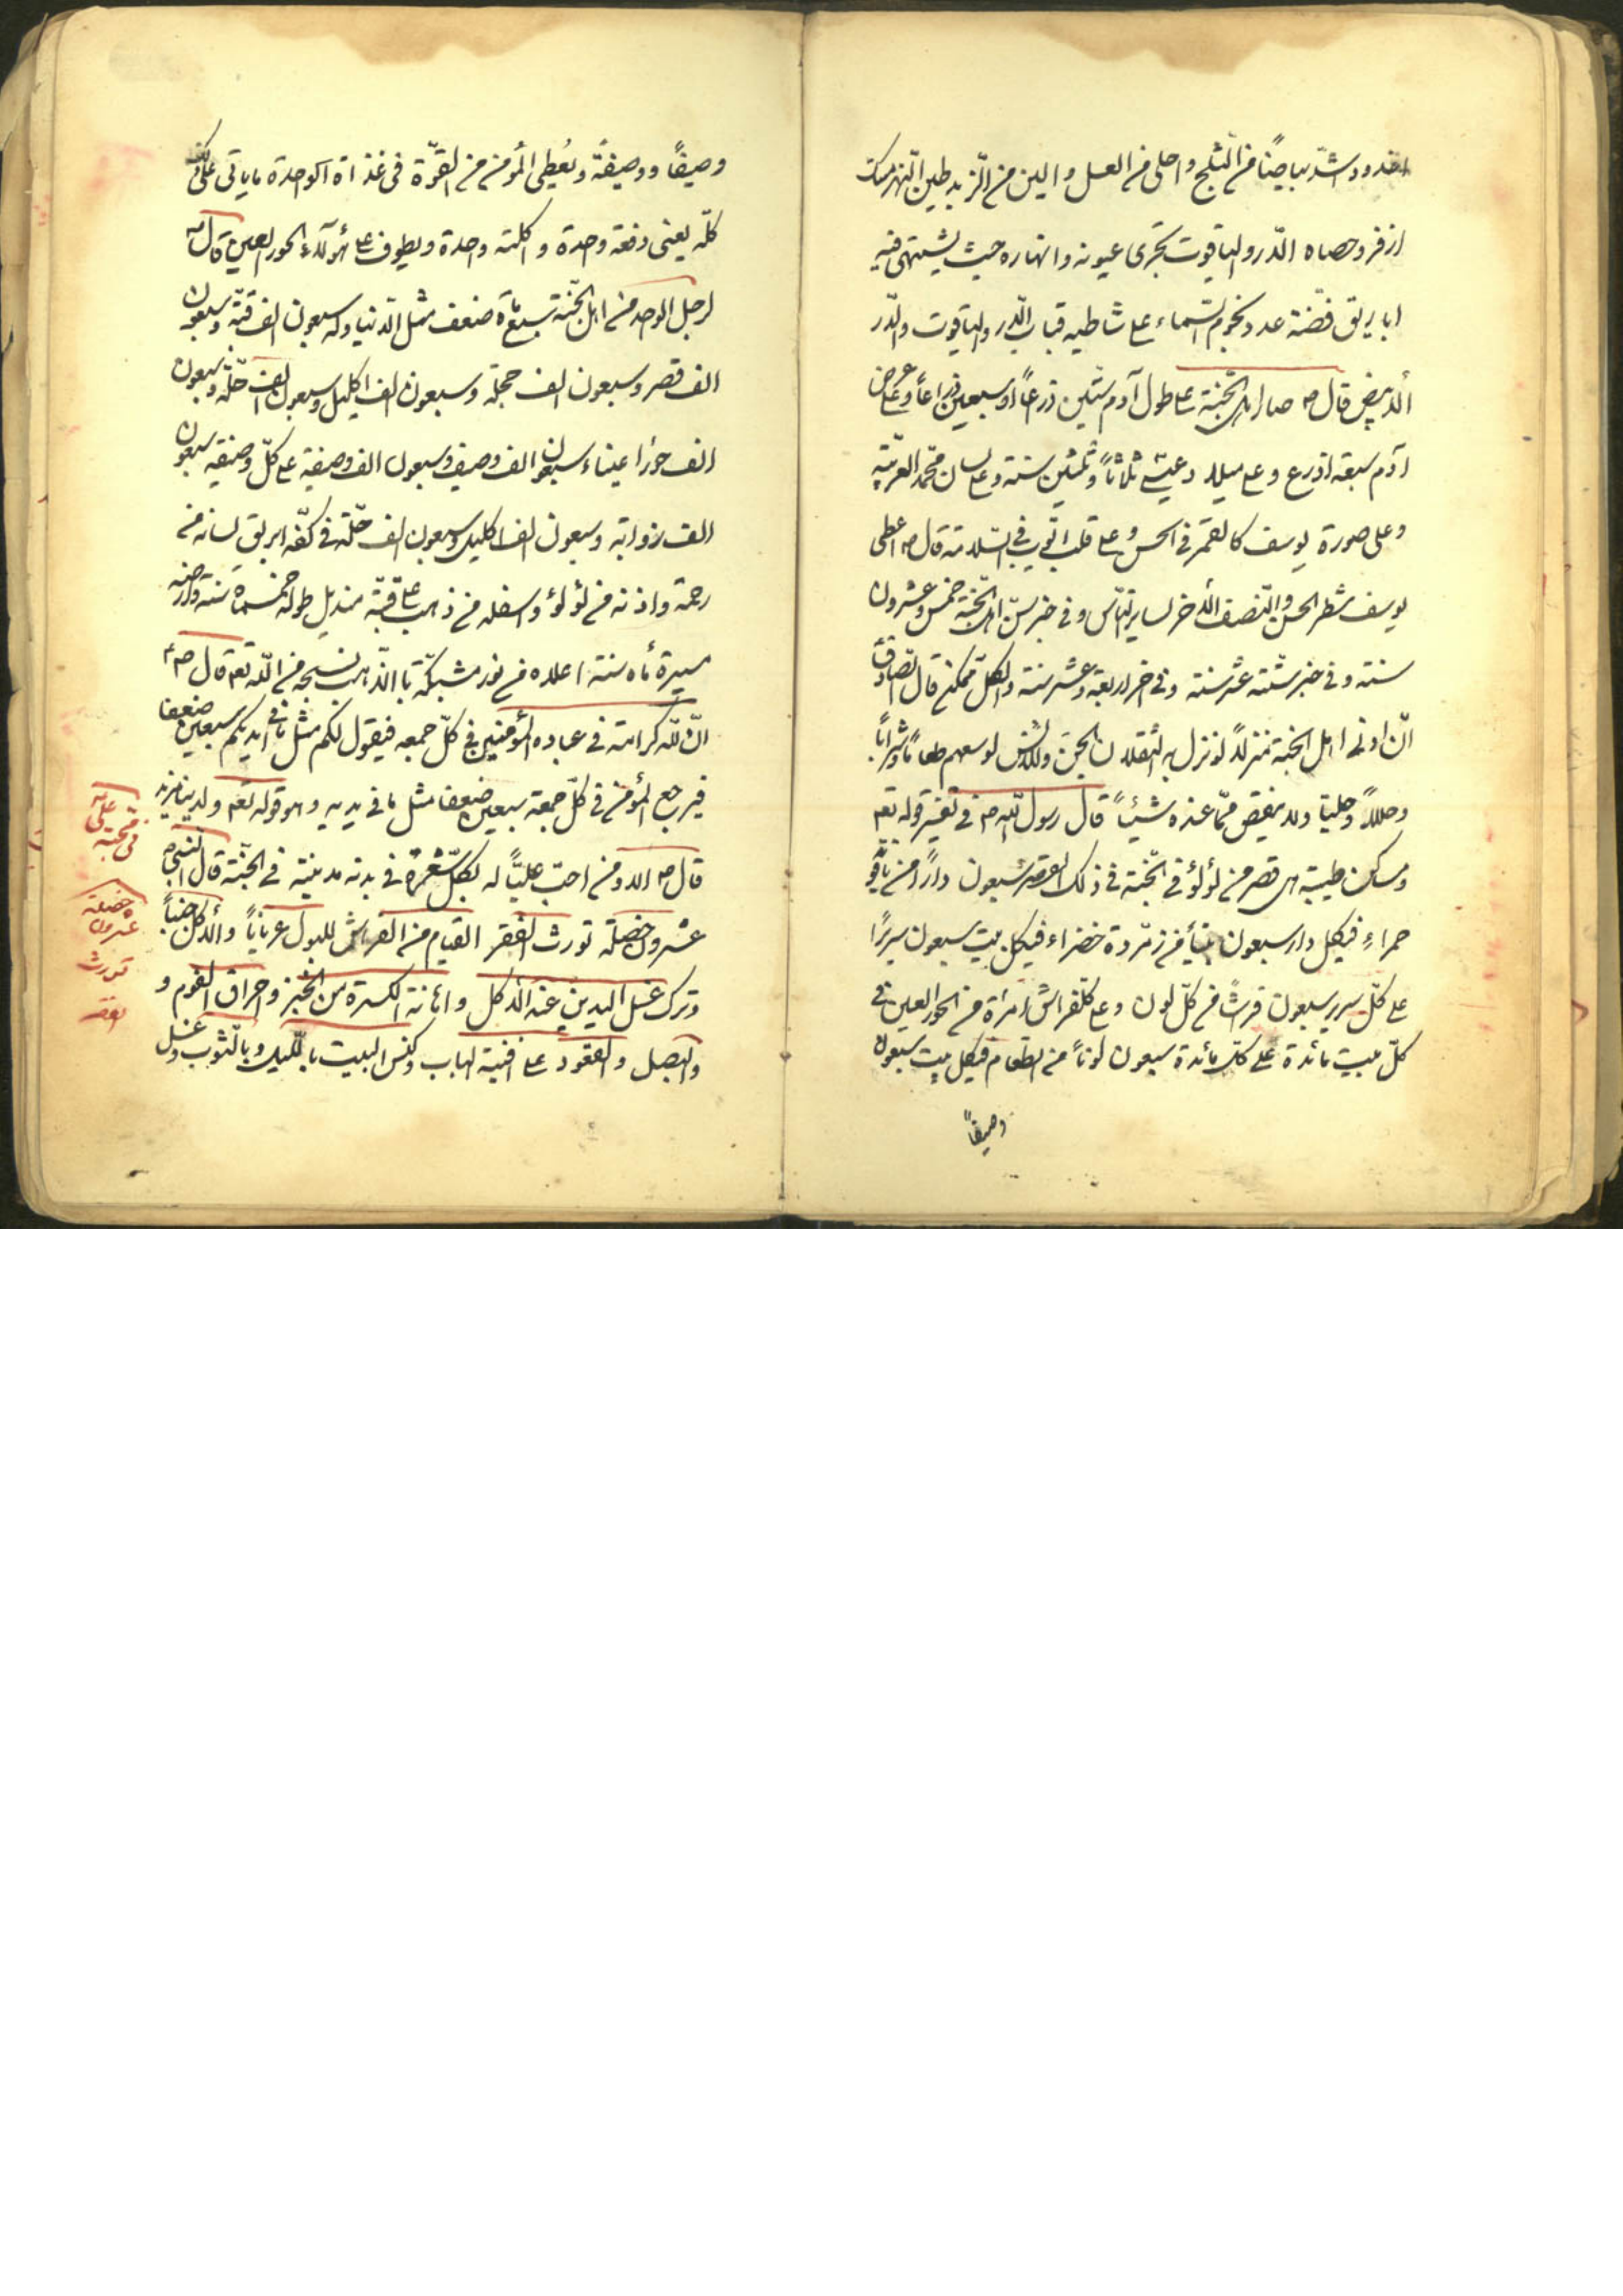 اخدود اشدّ بياضًا من الثّلج واحلى من العسل والين من الزّبد طين النّهر مسك
اذفر وحصاه الدّر والياقوت تجرى عيونه وانهاره حيث يشتهى فيه
اباريق فضّة عدد نجوم السّماء على شاطيه قباب الدّر والياقوت والدّر
الأبيض قال ص صار اهل الجنّة على طول آدم ستّين ذرعاً او سبعين ذراعاً وعلى عرض
آدم سبعة اذرع وعلى ميلاد عيسى ثلاثاً وثلثين سنة وعلى لسان محمّد العربيّة
وعلى صورة يوسف كالقمر فى الحسن وعلى قلب ايّوب فى السّلامة قال ص اعطى
يوسف شطر الحسن والنّصف الأخر لساير النّاس وفى خبر سنّ اهل الجنّة خمس وعشرون
سنة وفى خبر ستّة عشر سنة وفى اخر اربعة وعشر سنة والكلّ ممكن قال الصّادق
انّ ادنى اهل الجنّة منزلاً لو نزل به الثّقلان الجنّ والانس لوسعهم طعاماً وشراباً
وحللاً وحليّا ولا ينقص ممّا عنده شيئاً قال رسول اللّه ص فى تفسير قوله تعم
ومساكن طيبة هى قصر من لؤلؤ فى الجنّة فى ذلك القصر سبعون داراً من ياقوت
حمراء فيكل دار سبعون بيتاً من زمّردة خضراء فيكل بيت سبعون سريرًا
على كلّ سرير سبعون فرشاً من كلّ لون وعلى كلّ فراش امرأة من الحور العين فى
كلّ بيت مائدة على كلّ مائدة سبعون لوناً من الطّعام فيكل بيت سبعون
وصيفاً
وصيفاً ووصيفة ويُعطى المؤمن من القوّة فى غذاة الوحدة ما ياتى على ذلك
كلّه يعنى دفعة وحدة واكلته وحدة ويطوف على هؤلاء الحور العين قال ص
لرجل الوحد من اهل الجنّة سبعمأة ضعف مثل الدّنيا وله سبعون الف قبّة وسبعون
الف قصر وسبعون الف حجلة وسبعون الف اكليل وسبعون الف حلّة وسبعون
الف حورا عيناء وسبعون الف وصيف وسبعون الف وصيفة على كلّ وصيفة سبعون
الف زوابة وسبعون الف اكليل وسبعون الف حلّة فى كفّه ابريق لسانه من
رحمة واذنه من لؤلؤ واسفله من ذهب على قبّة منديل طوله خمسمأة سنة وعرضه
مسيرة مأه سنة اعلاه من نور مشبكّة باالذّهب نسجه من اللّه تعم قال ص
انّ للّه كرامة فى عباده المؤمنين فى كلّ جمعه فيقول لكم مثل ما فى ايديكم سبعين ضعفا
فيرجع المؤمن فى كلّ جمعة سبعين ضعفا مثل ما فى يديه وهو قوله تعم ولدينا مزيد
قال ص الا ومن احبّ عليّاً له بكلّ شعرة فى بدنه مدينة فى الجنّة قال النّبى ص
عشرون خصلة تورث الفقر القيام من الفراش للبول عرياناً والأكل جنباً
وترك غسل اليدين عند الاكل واهانة الكسرة من الخبز واحراق الثوم و
والبصل والقعود على افنية الباب وكنس البيت بالّليل وبالثّوب وغسل
فى محبّة
على
خصلة
عشرون
تورث
الفقر